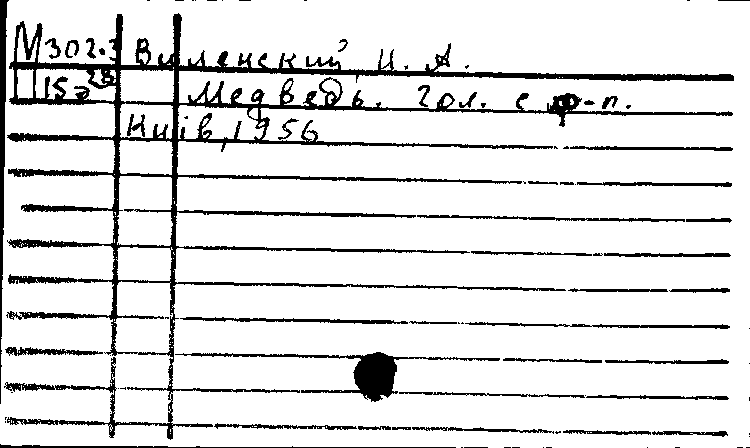 М302.3 Виленский, И. А.
Медведь. Гол. с ф-п.
Київ, 1956